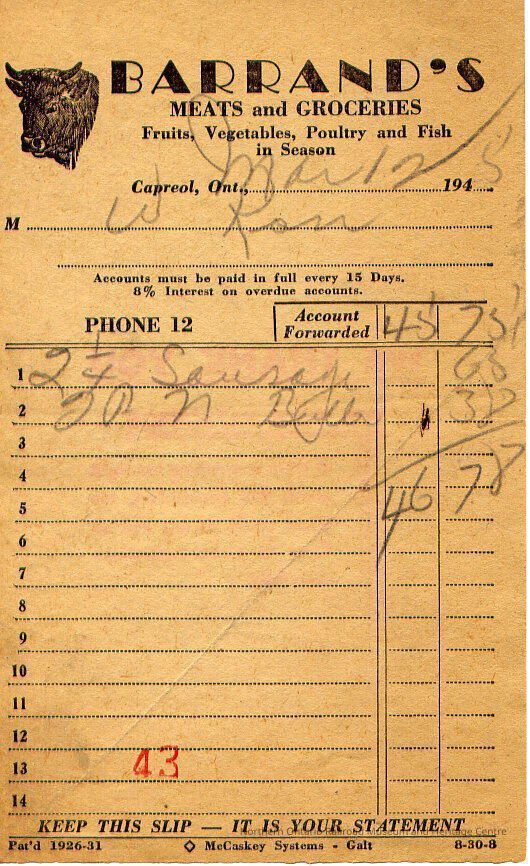 BARRAND'S
MEATS and GROCERIES
Fruits, Vegetables, Poultry and Fish
in Season
Capreol, Ont., Mar 12 194 5
M W Ross
Accounts must be paid in full every 15 Days.
8% Interest on overdue accounts.
PHONE 12 Account Forwarded 45 75
1 2 1/4 Sausage 68
2
3
4
5 46 78
6
7
8
9
10
11
12
13 43
14
KEEP THIS SLIP — IT IS YOUR STATEMENT
Northern Ontario Railroad Museum and Heritage Centre
Pat'd 1926-31 ◇ McCaskey Systems - Galt 8-30-8